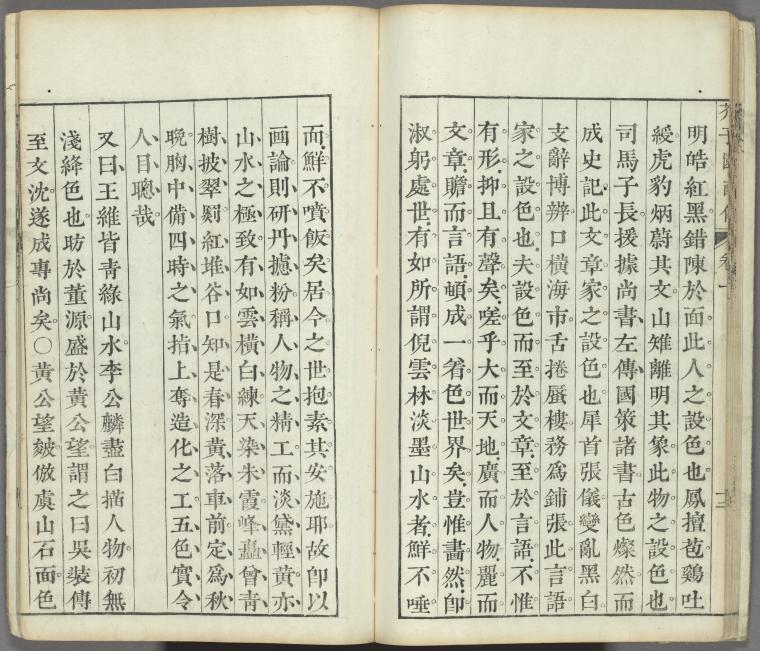 芥子園畫傳 卷一
明皓紅黑錯陳於面此人之設色也鳳擅苞鷄吐
綬虎豹炳蔚其文山雉離明其象此物之設色也
司馬子長援據尚書左傳國策諸書古色燦然而
成史記此文章家之設色也犀首張儀變亂黑白
支辭博辨口橫海市舌捲蜃樓務爲鋪張此言語
家之設色也夫設色而至於文章至於言語不惟
有形抑且有聲矣嗟乎大而天地廣而人物麗而
文章贍而言語頓成一着色世界矣豈惟畫然卽
淑躬處世有如所謂倪雲林淡墨山水者鮮不唾
面鮮不噴飯矣居今之世抱素其安施耶故卽以
画論則研丹攄粉稱人物之精工而淡黛輕黄亦
山水之極致有如雲橫白練天染朱霞峰矗曾青
樹披翠罽紅堆谷口知是春深黄落車前定爲秋
晚胸中備四時之氣指上奪造化之工五色實令
人目聰哉
又曰王維皆青綠山水李公麟盡白描人物初無
淺絳色也昉於董源盛於黄公望謂之曰吳裝傳
至文沈遂成專尚矣〇黄公望皴倣虞山石面色